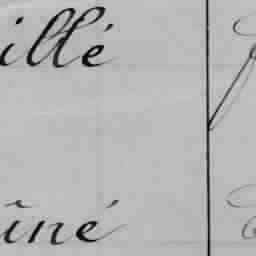 illé
îné